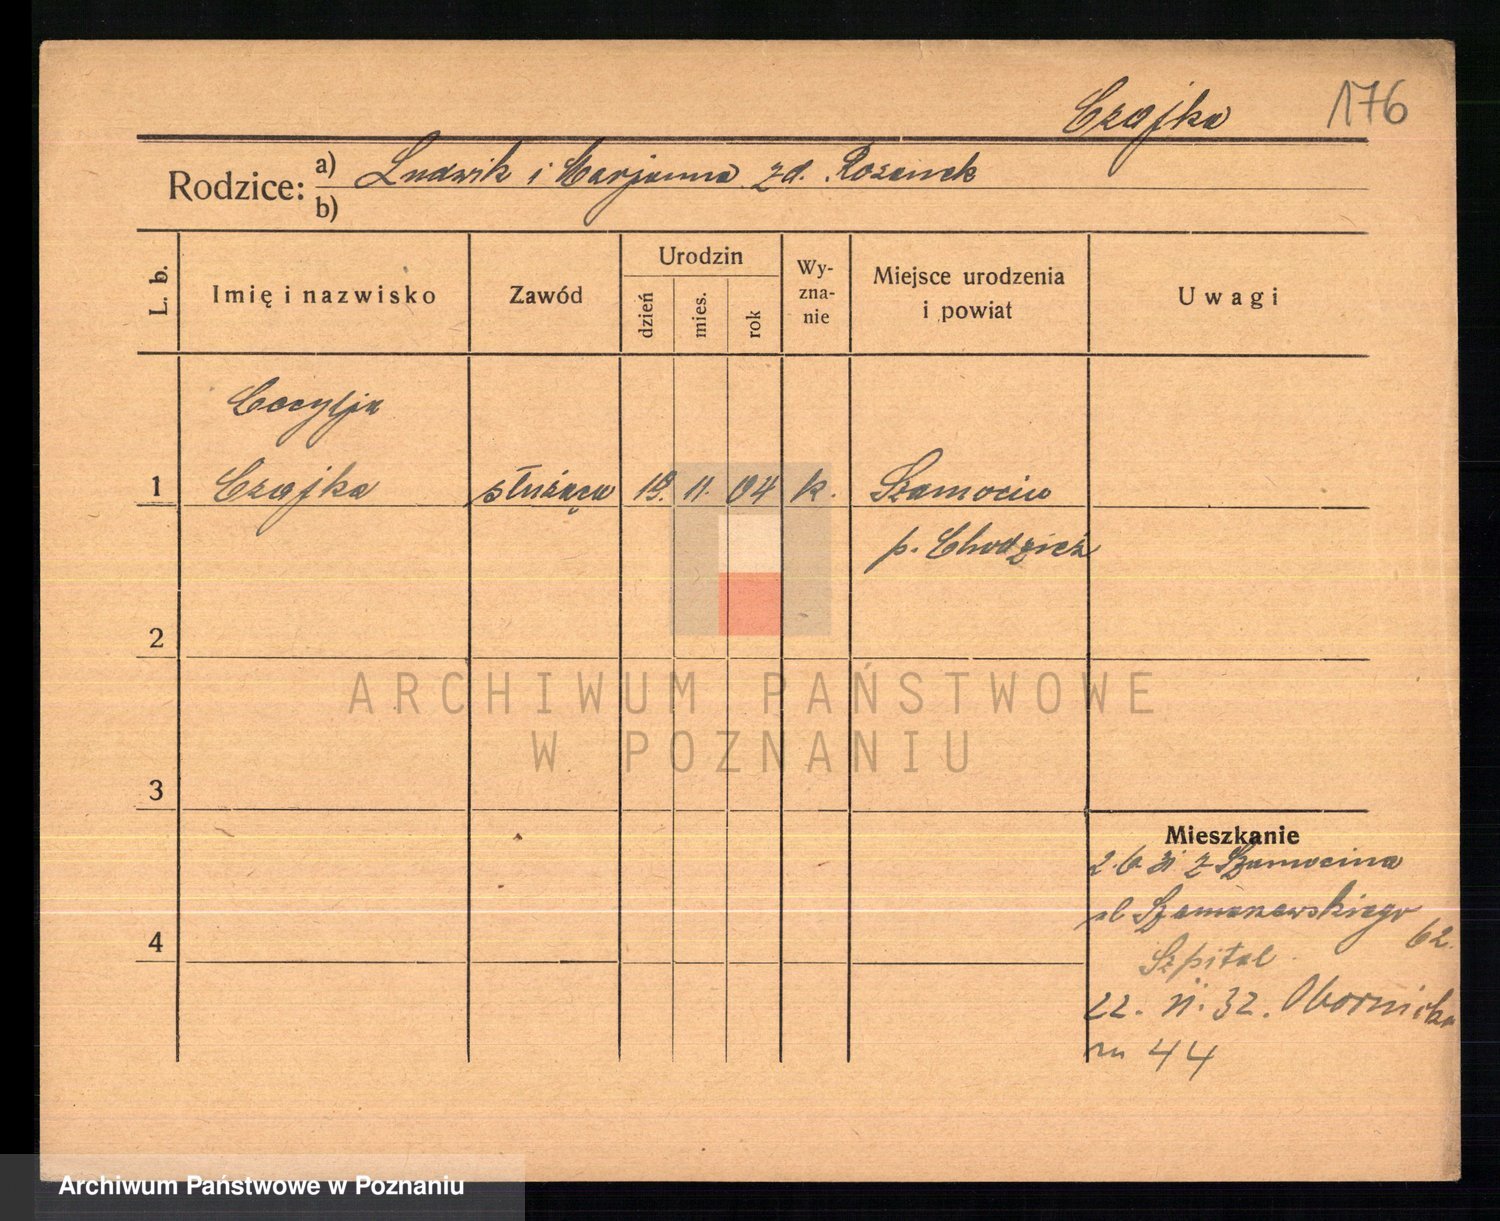 Czajka 176
Rodzice: a) Ludwik i Marjanna zd. Rosanek
b)
L. b. Imię i nazwisko Zawód Urodzin dzień mies. rok Wy-zna-nie Miejsce urodzenia i powiat Uwagi
Cecylja
1 Czajka służąca 19. 11. 04 k. Szamocin
p. Chodzież
2
ARCHIWUM PAŃSTWOWE
W POZNANIU
3
Mieszkanie
2.6.31 z Szamocina
ul Szamarzewskiego
62.
4
Szpital
22. II. 32. Obornicka
44
Archiwum Państwowe w Poznaniu